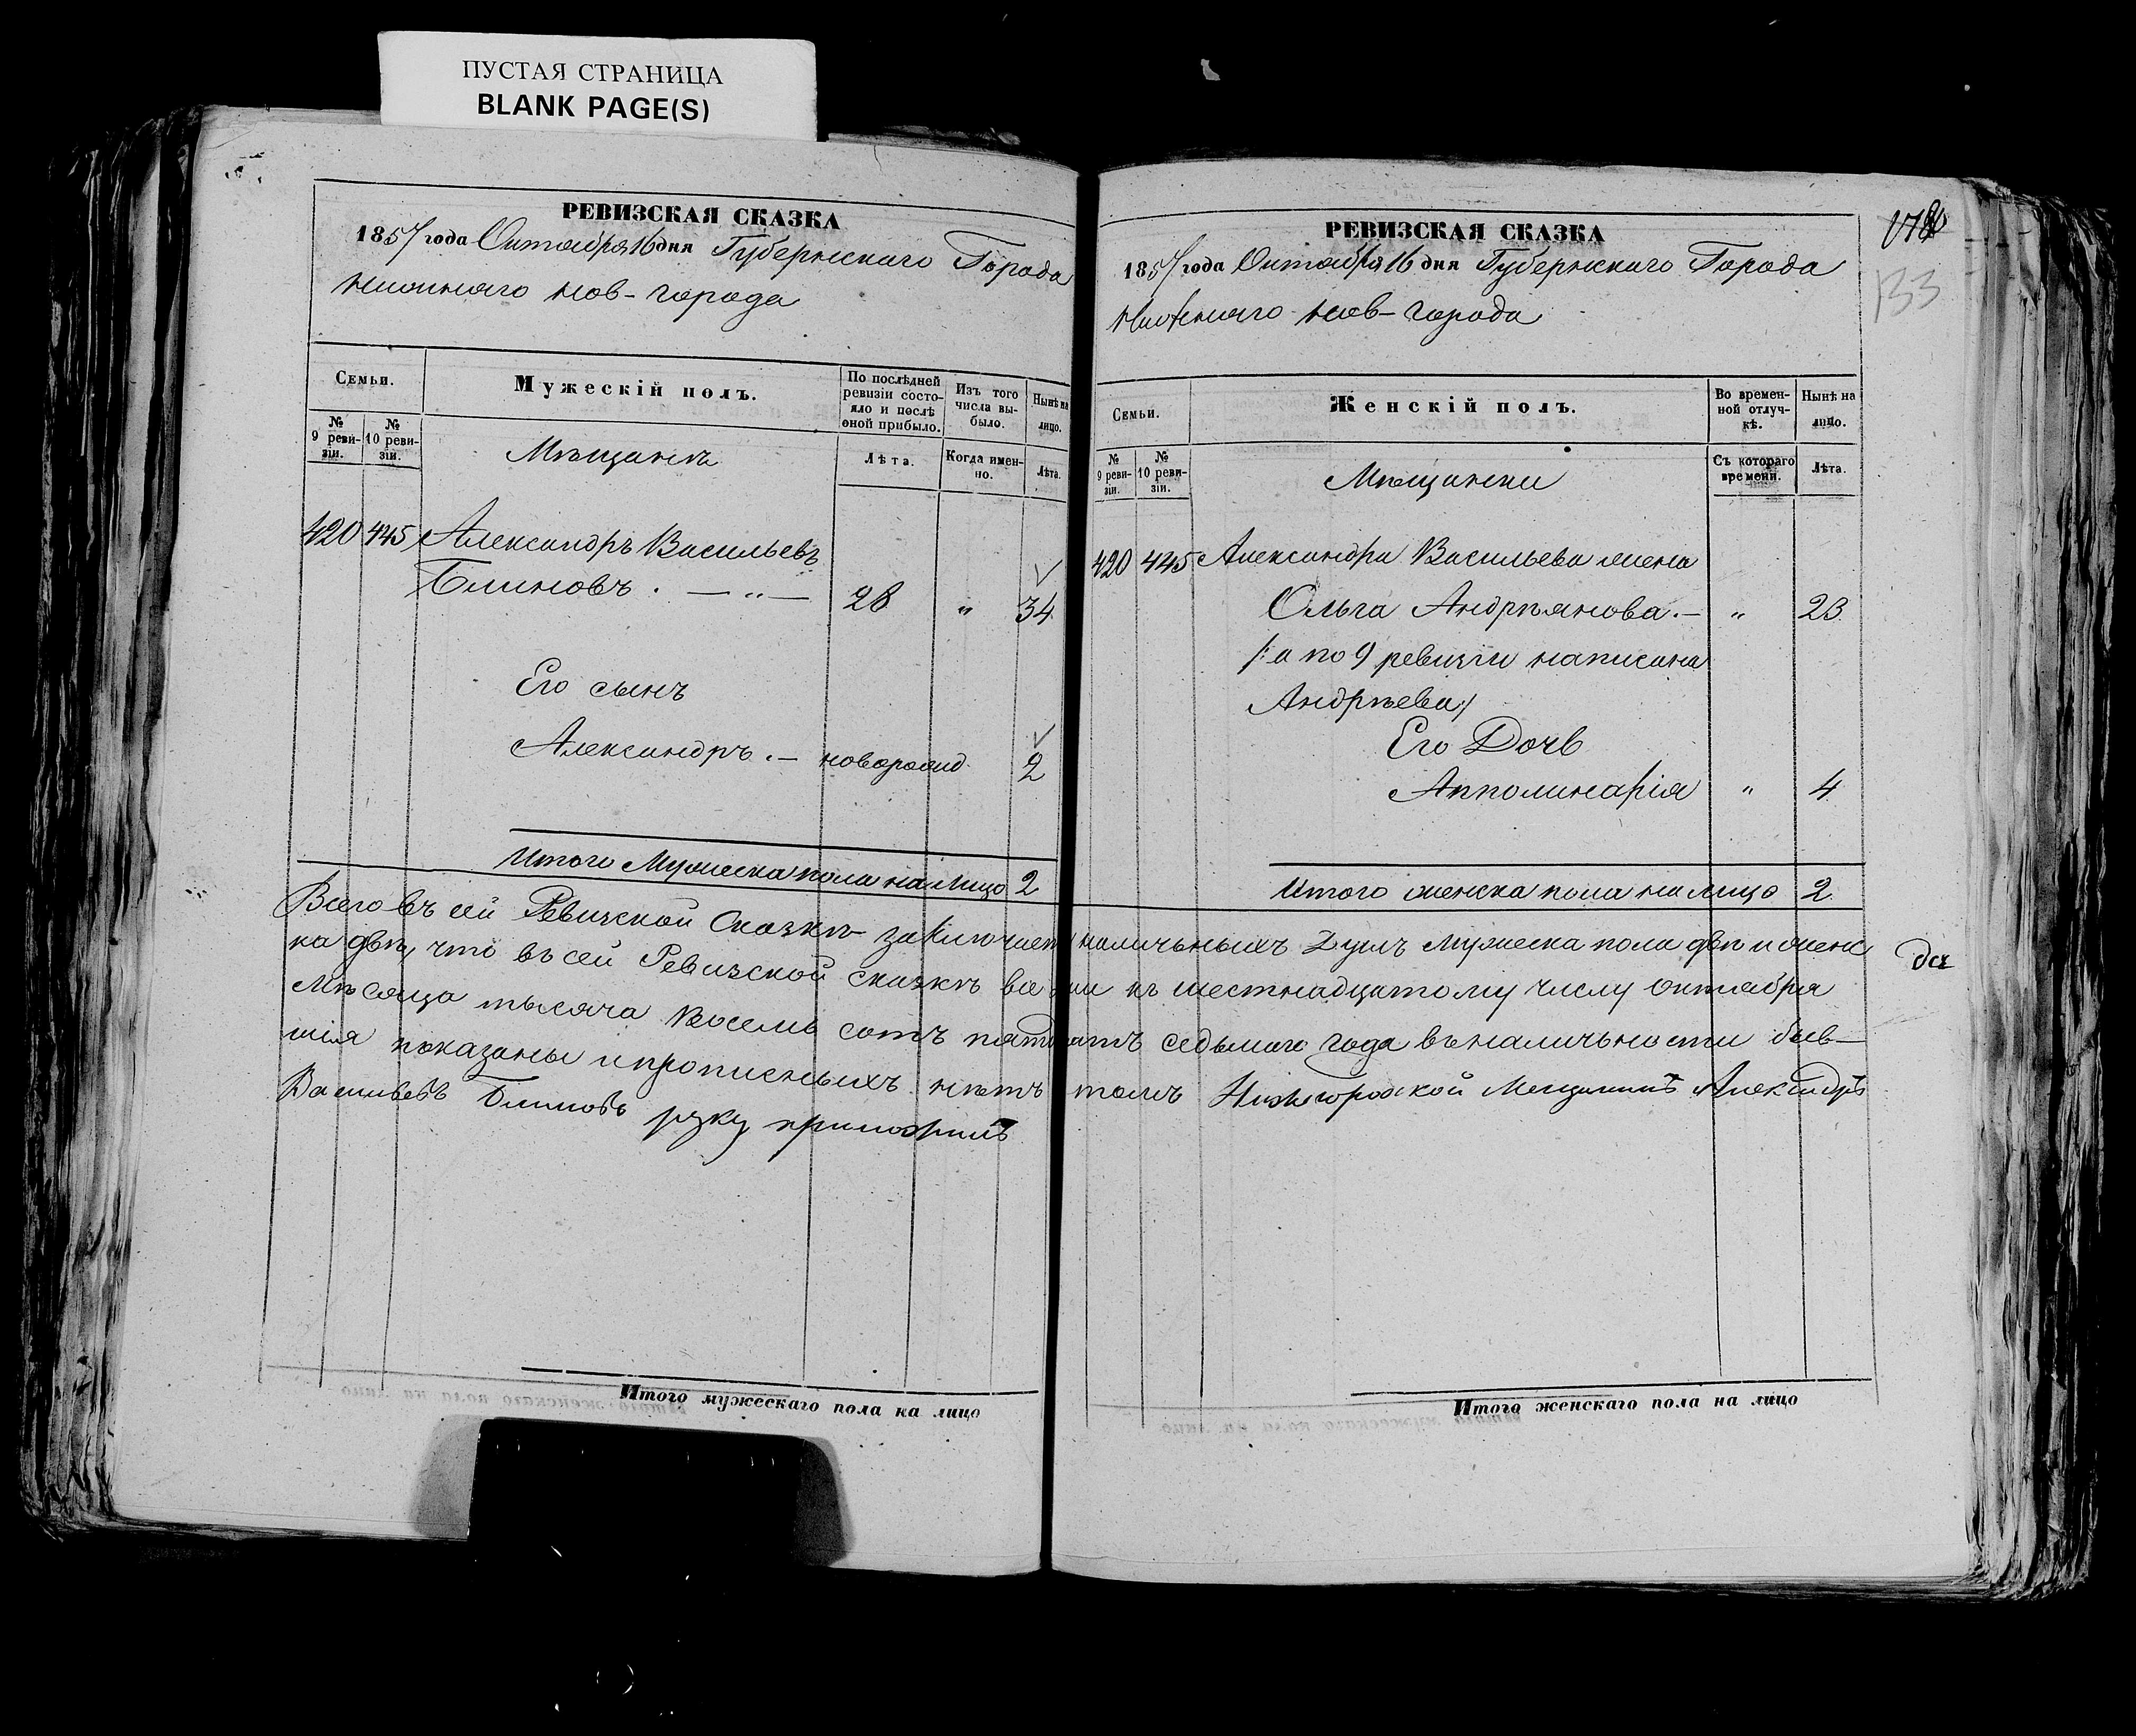 ПУСТАЯ СТРАНИЦА
BLANK PAGE(S)
РЕВИЗСКАЯ СКАЗКА
1857 года Октября 16 дня Губернскаго Города
Нижняго Нов-города
Семьи.
Мужескій полъ.
По послѣдней ревизіи состояло и послѣ оной прибыло.
Изъ того числа выбыло.
Нынѣ на лицо.
№ 9 ревизіи.
№ 10 ревизіи.
Мѣщанѣ
Лѣта.
Когда именно.
Лѣта.
420 445 Александръ Васильевъ
Блиновъ. — „ — 28 „ 34
Его сынъ
Александръ. — поворожд. 2
Итого Мужеска пола на лицо 2
РЕВИЗСКАЯ СКАЗКА
1857 года Октября 16 дня Губернскаго Города
Нижняго Нов-города
133
Семьи.
Женскій полъ.
Во временной отлучкѣ.
Нынѣ на лицо.
№ 9 ревизіи.
№ 10 ревизіи.
Мѣщанки
Съ котораго времени.
Лѣта.
420 445 Александра Васильева жена
Ольга Андрѣянова. — „ 23
/: а по 9 ревизіи написана
Андрѣева :/
Его Дочь
Апполинарія „ 4
Итого женска пола на лицо 2
Всего въ сей Ревизской Сказкѣ заключает наличьныхъ Душъ мужеска пола двѣ и женс
ка двѣ, что въ сей Ревизской сказкѣ всѣ къ шестнадцатому числу октября
Мѣсяца тысяча Восемь сотъ пятдцатъ седьмаго года въ наличьности быв-
шія показаны и прописныхъ нѣтъ томъ Нижегородской Мещанинъ Александръ
Васильевъ Блиновъ руку приложилъ
Итого мужескаго пола на лицо
Итого женскаго пола на лицо